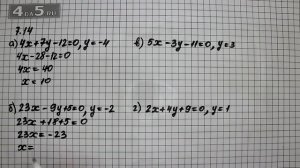 4ДАУН.ЕС
7.14
а) 4x+7y-12=0, y=-4
4x-28-12=0
4x=40
x=10
в) 5x-3y-11=0, y=3
б) 23x-9y+5=0, y=-2
23x+18+5=0
23x=-23
x=
г) 2x+4y+9=0, y=1